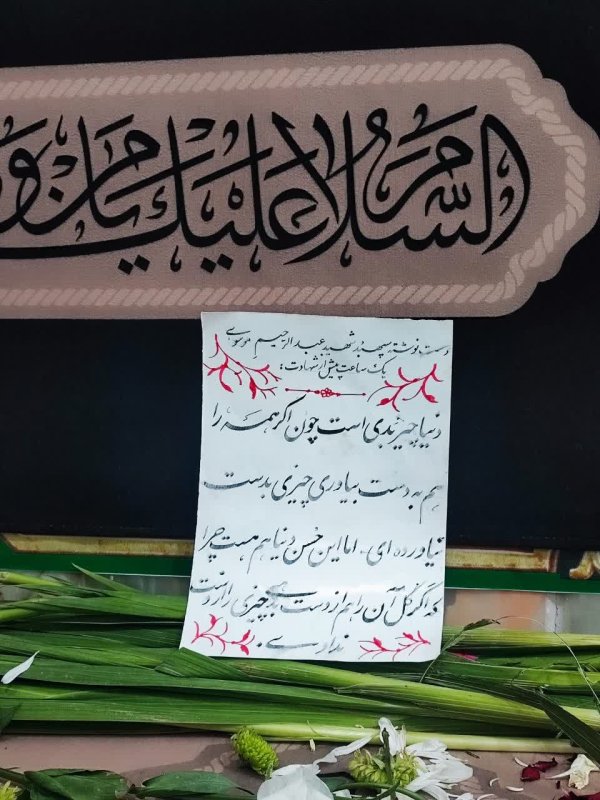 السلام علیک یا من
دست نوشته سپهبد شهید عبدالرحیم موسوی
یک ساعت پیش از شهادت:
دنیا چیز بدی است چون اگر همه را
هم به دست بیاوری چیزی بدست
نیاورده ای. اما این حُسن دنیا هم هست چرا
که اگر کل آن را هم از دست بدهی چیزی را از دست
نداده ای.